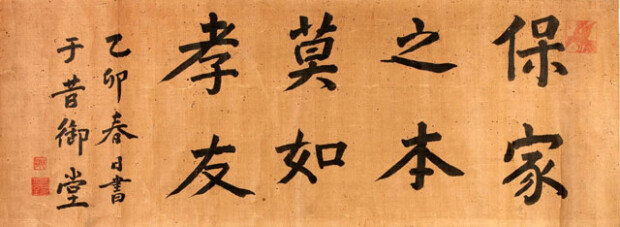 保家
之本
莫如
孝友
乙卯春日書
于昔御堂